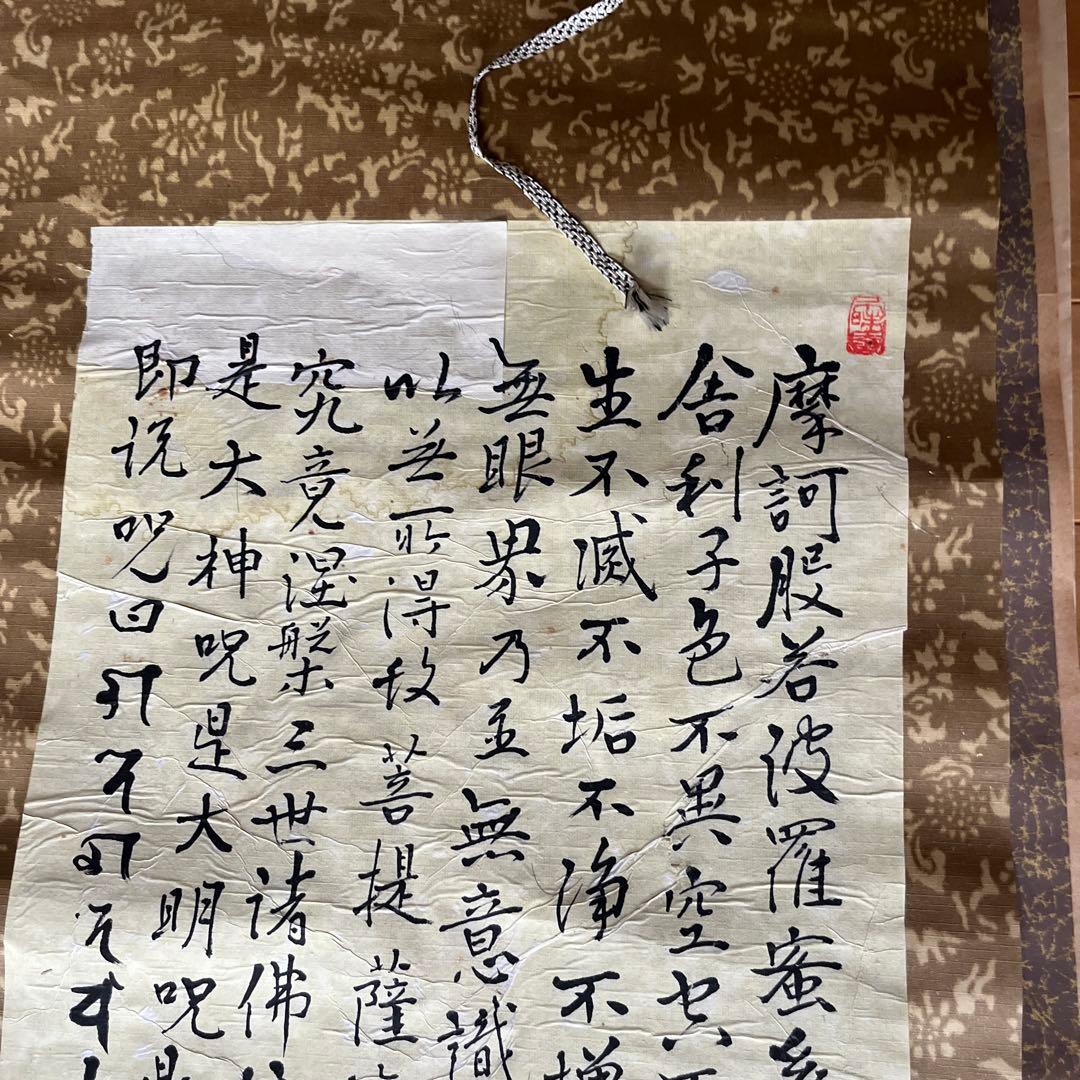 摩訶般若波羅蜜
舎利子色不異空空不
生不滅不垢不浄不増
無眼界乃至無意識
以無所得故菩提薩
究竟涅槃三世諸佛
是大神呪是大明呪是
即説呪曰